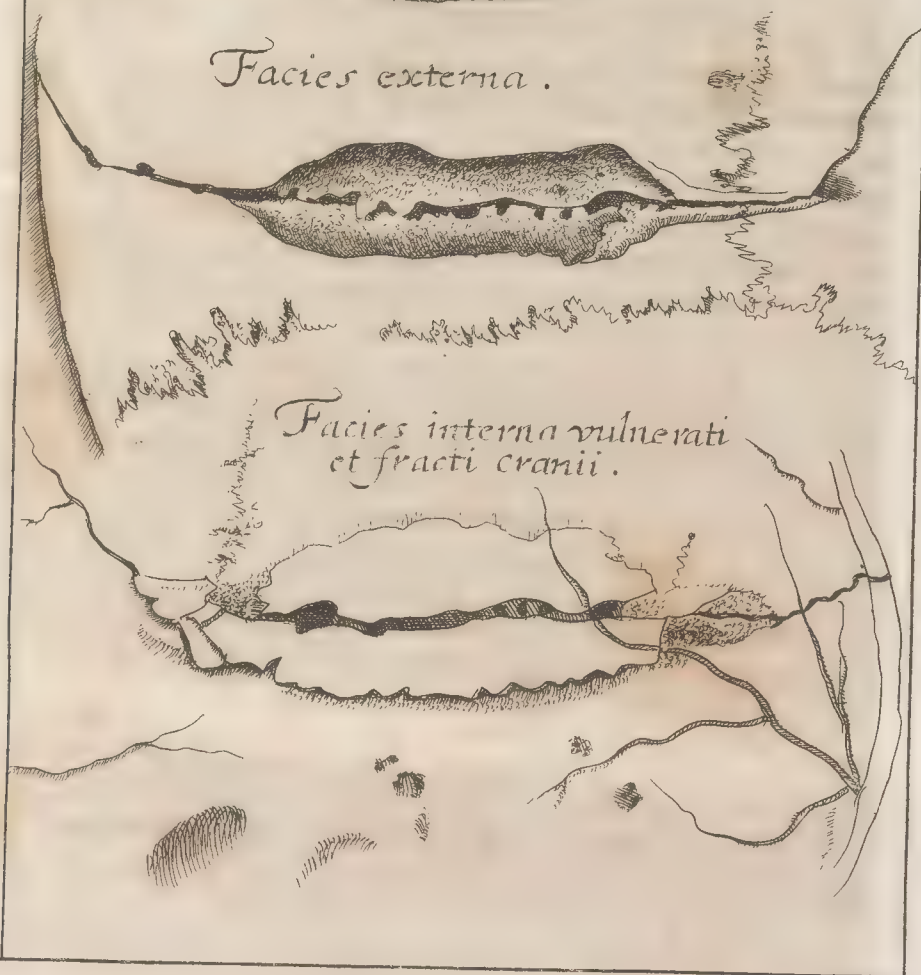 Facies externa.
Facies interna vulnerati
et fracti cranii.